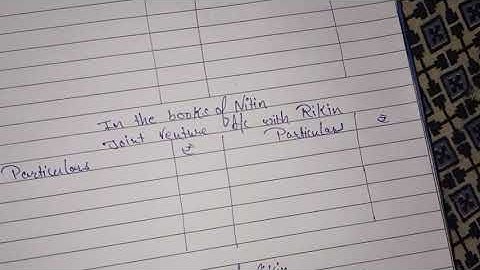 In the books of Nitin
Joint Venture A/c with Rikin
Particulars ₹ Particular ₹